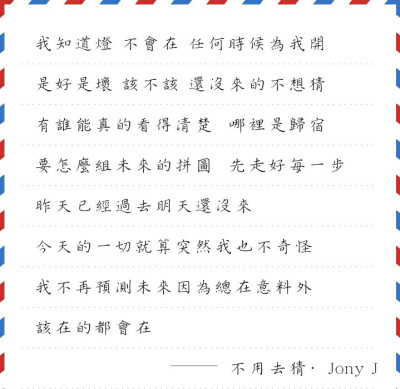 我知道燈 不會在 任何時候為我開
是好是壞 該不該 還沒來的不想猜
有誰能真的看得清楚 哪裡是歸宿
要怎麼組未來的拼圖 先走好每一步
昨天已經過去明天還沒來
今天的一切就算突然我也不奇怪
我不再預測未來因為總在意料外
該在的都會在
—— 不用去猜· Jony J